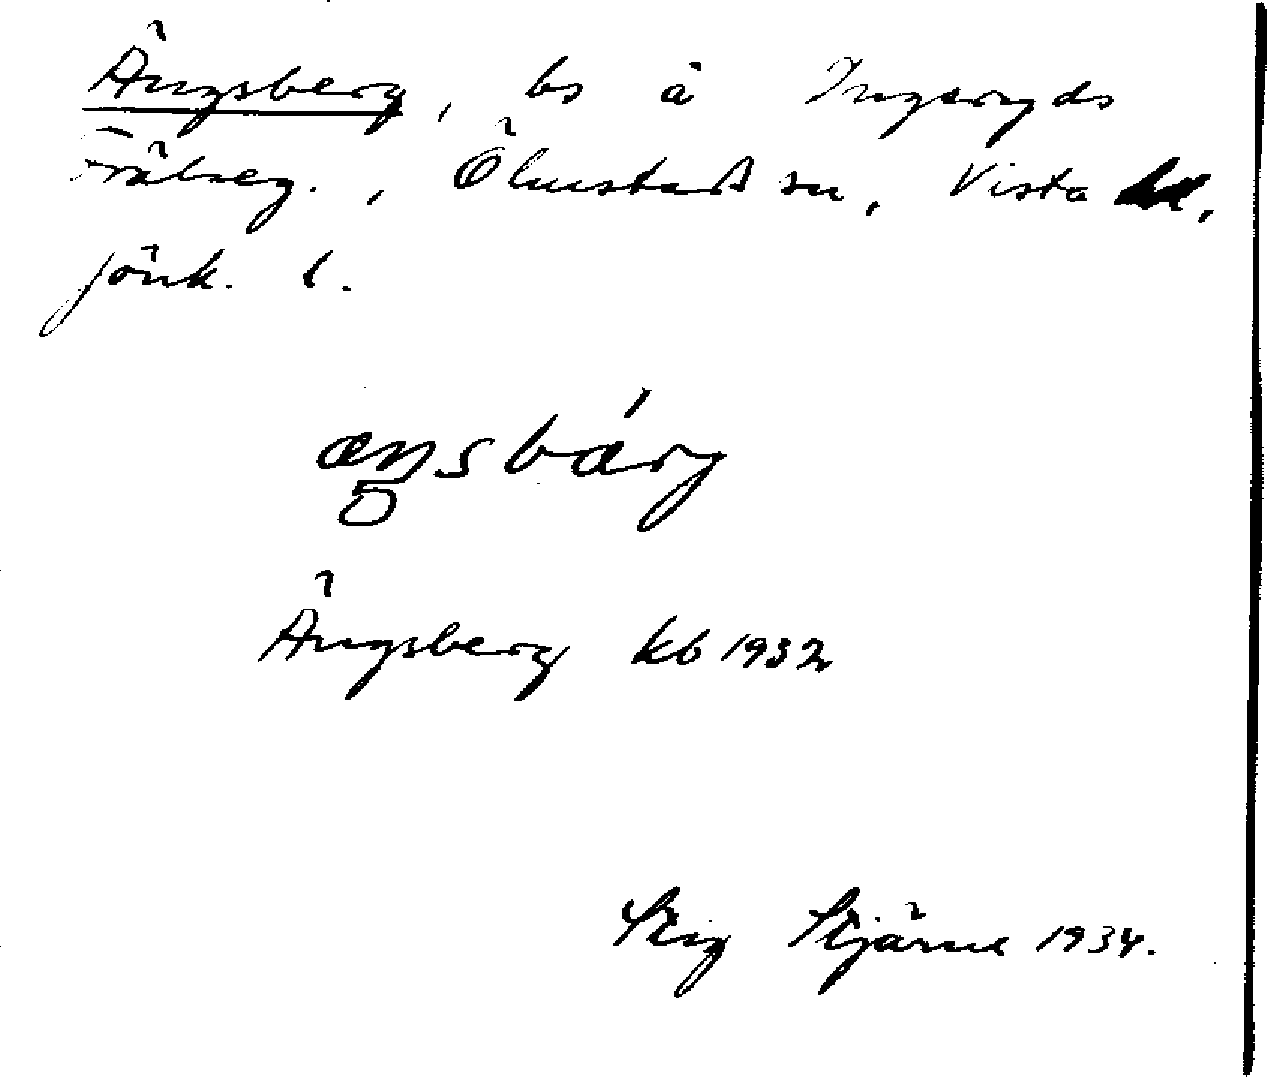 Ängsberg, bs å Ingaryds
Frälseg., Ölmstad sn, Vista hd,
Jönk. l.
æŋsbǽrg
Ängsberg kb 1932
Stig Stjärne 1934.